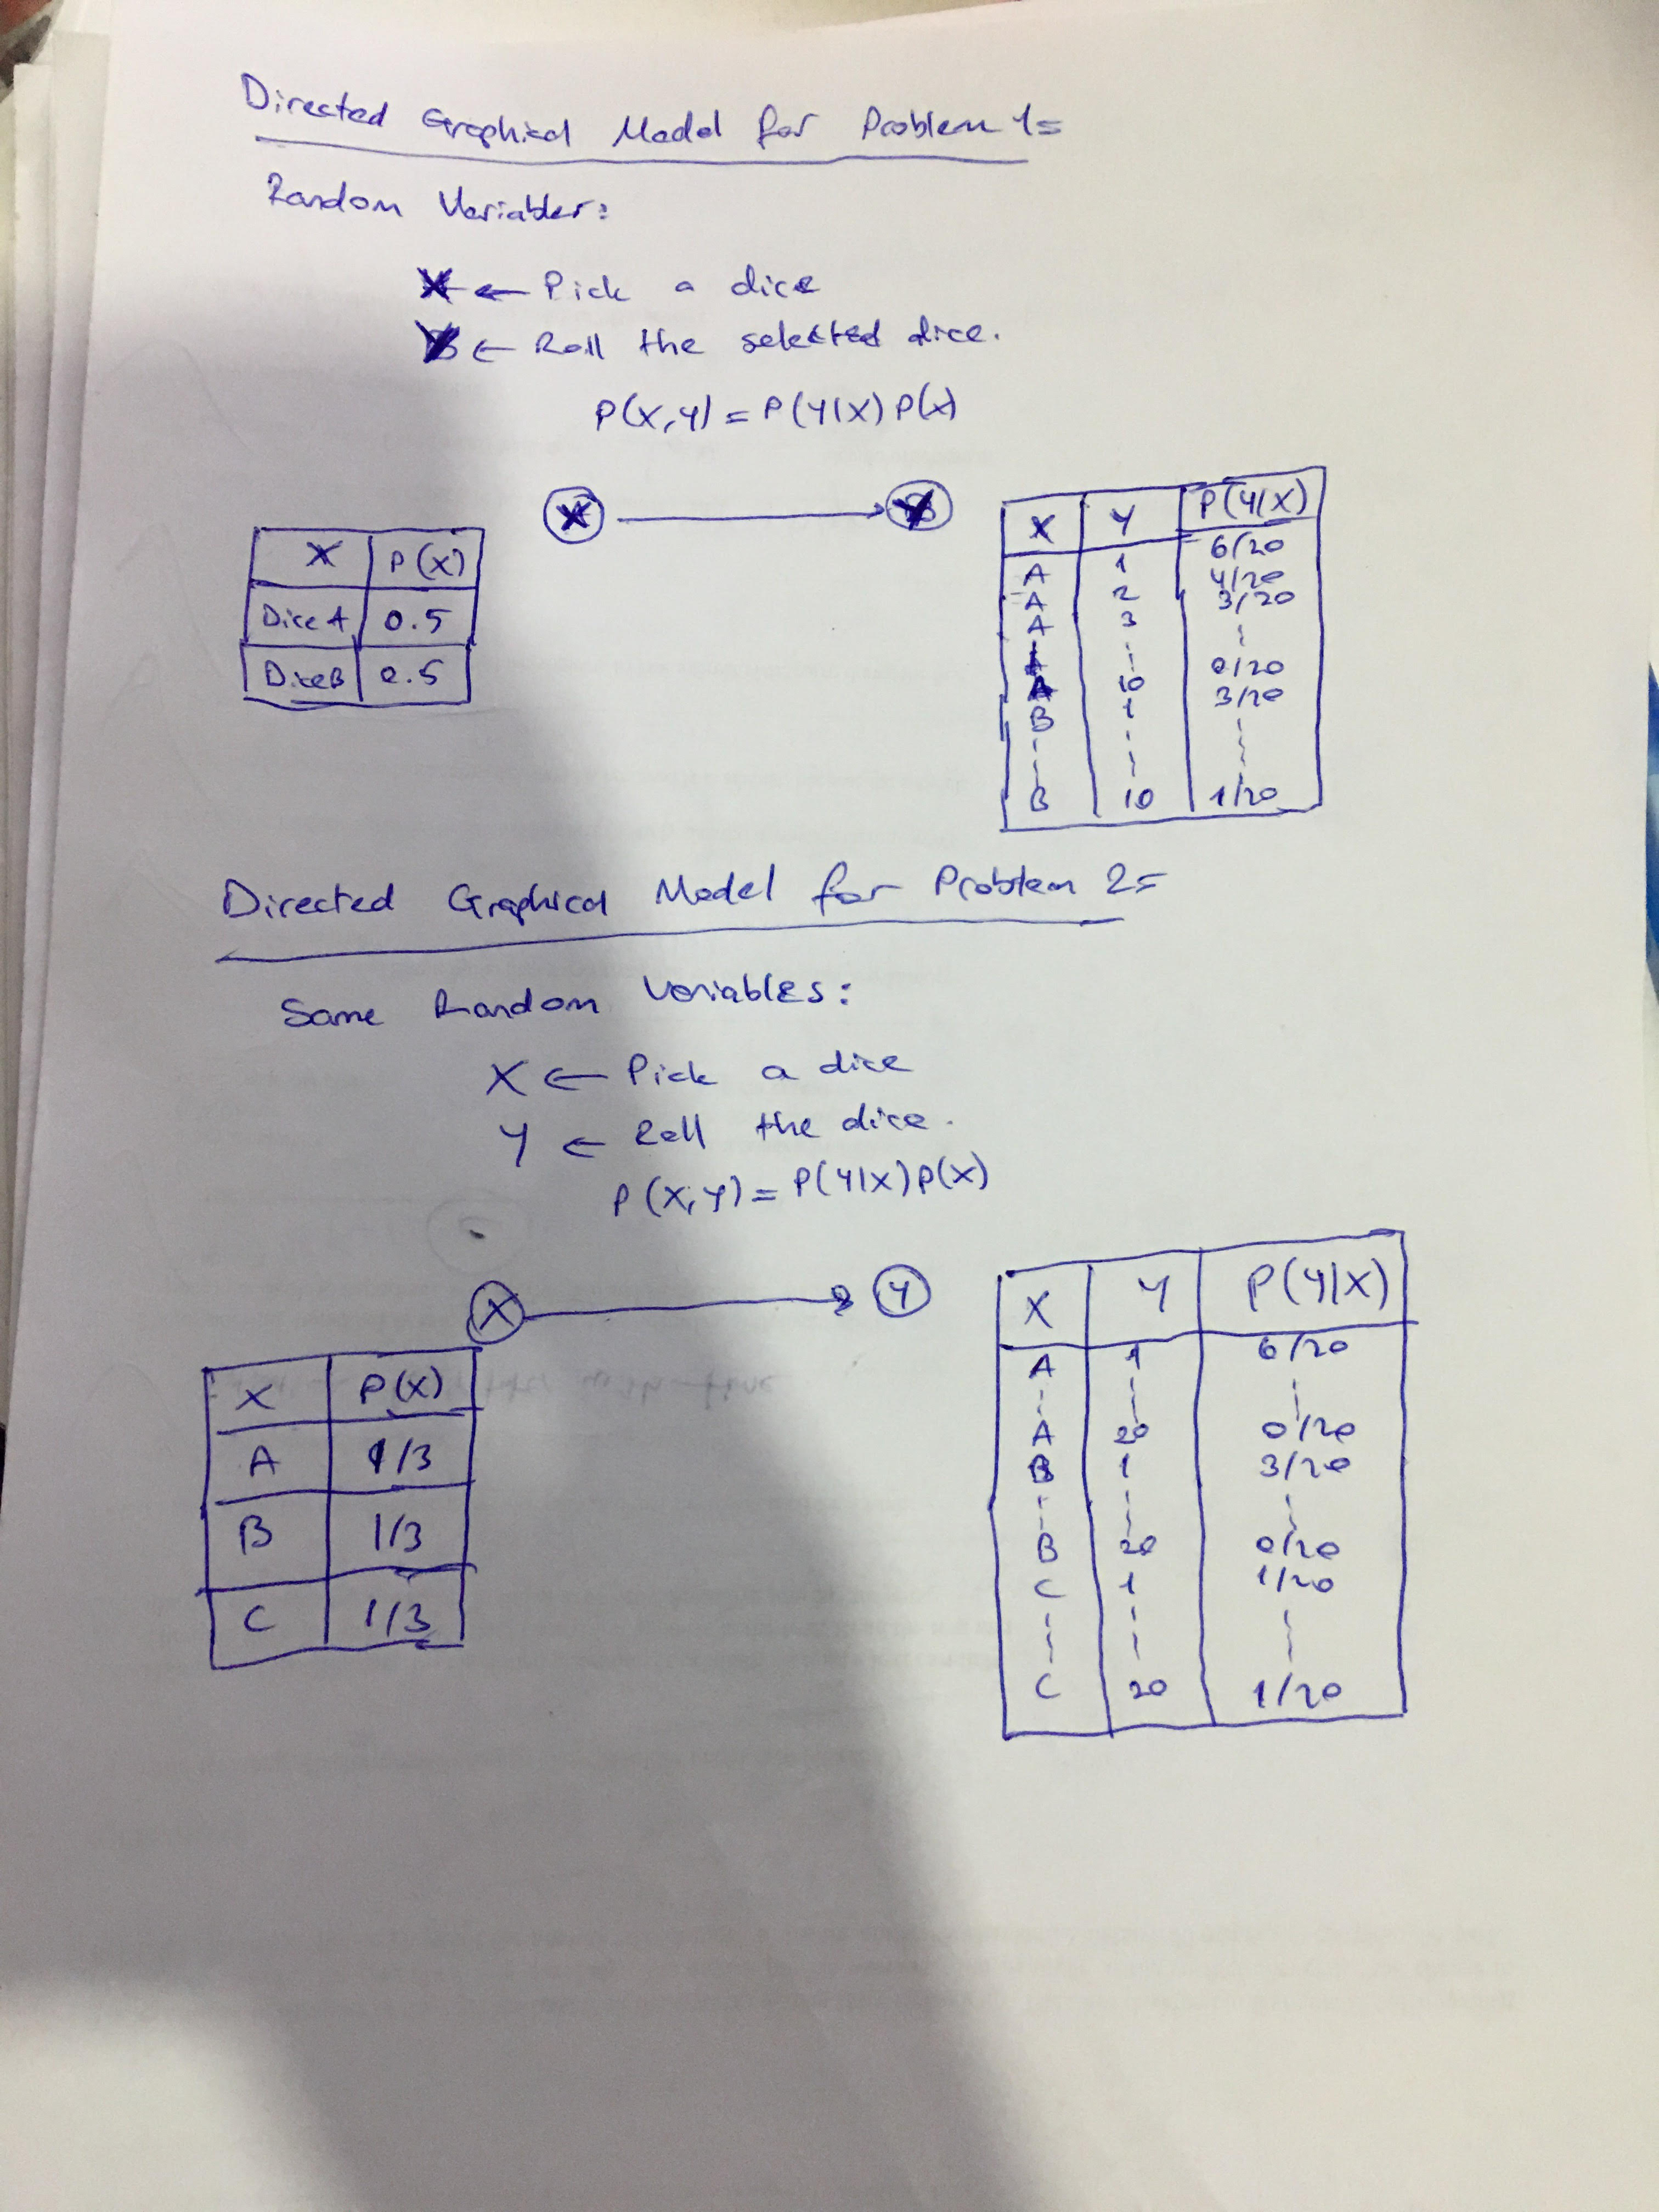 Directed Graphical Model for Problem 1=
Random Variables:
X ← Pick a dice
Y ← Roll the selected dice.
P(X,Y) = P(Y|X) P(X)
X → Y
X P(X)
Dice A 0.5
Dice B 0.5
X Y P(Y|X)
A 1 6/20
A 2 4/20
A 3 3/20
A 10 0/20
B 1 3/20
B 10 1/20
Directed Graphical Model for Problem 2=
Same Random Variables:
X ← Pick a dice
Y ← Roll the dice.
P(X,Y) = P(Y|X) P(X)
X → Y
X P(X)
A 1/3
B 1/3
C 1/3
X Y P(Y|X)
A 1 6/20
A 20 0/20
B 1 3/20
B 20 0/20
C 1 1/20
C 20 1/20